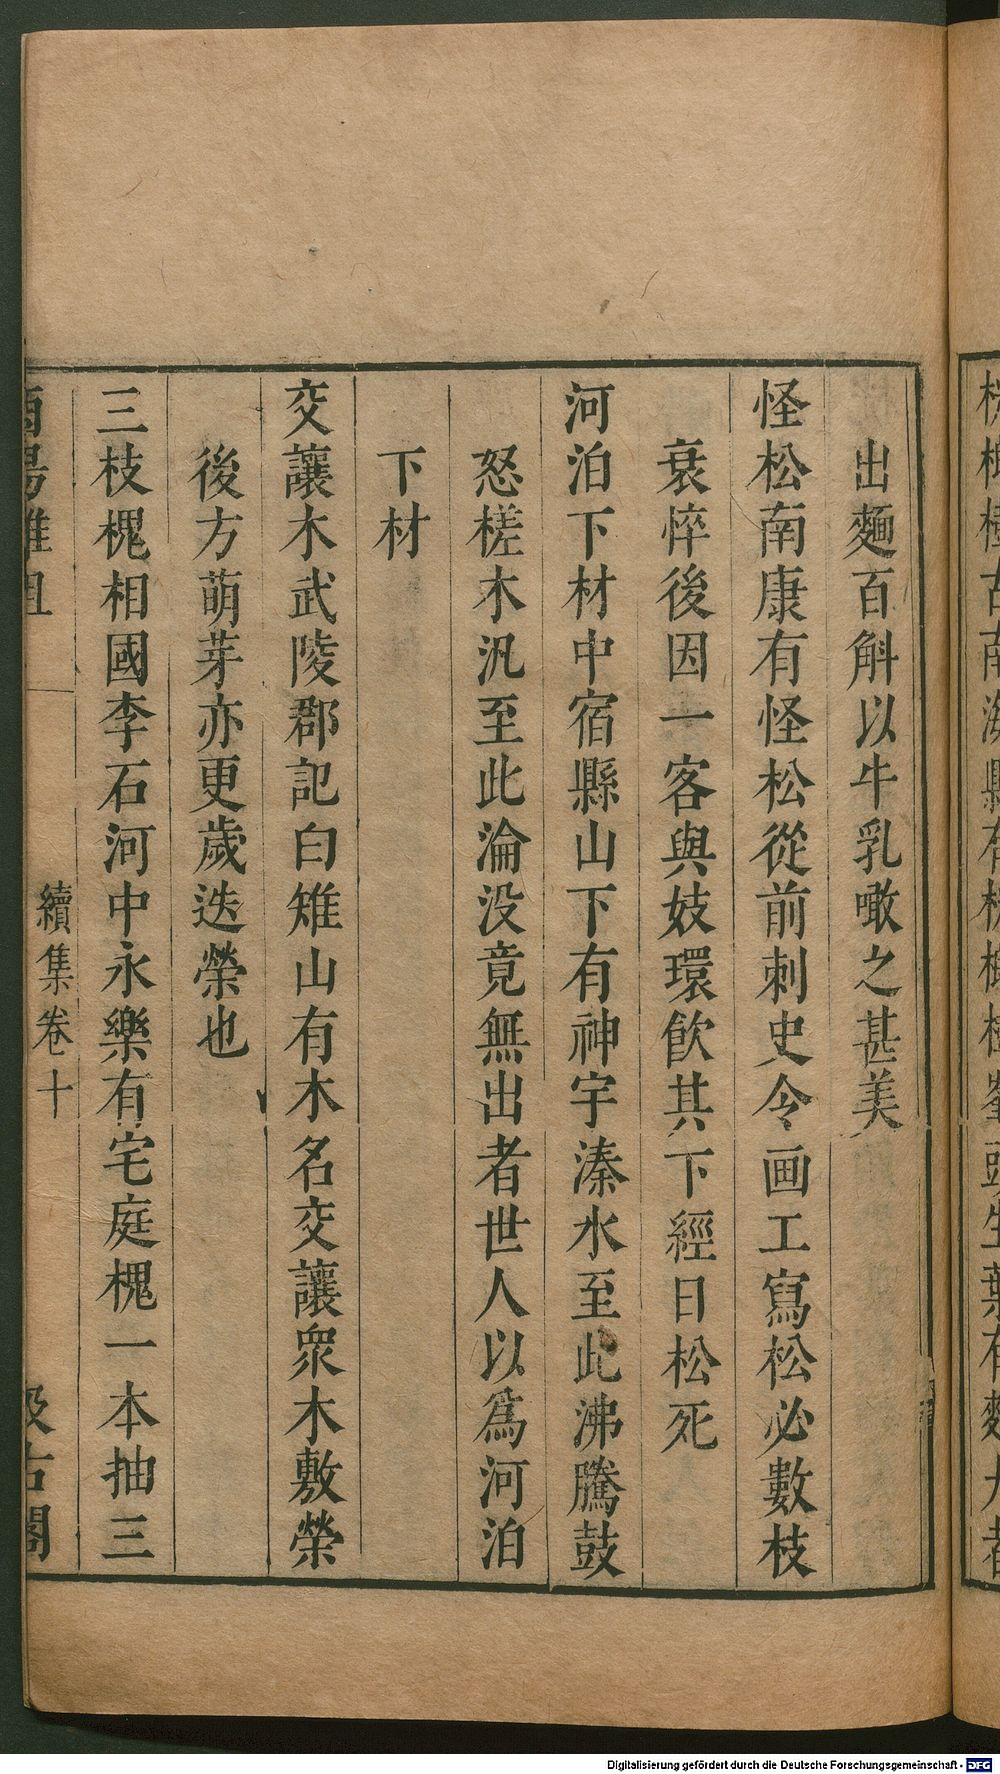 出麵百斛以牛乳噉之甚美
怪松南康有怪松從前刺史令画工寫松必數枝
衰悴後因一客與妓環飲其下經日松死
河泊下材中宿縣山下有神宇溱水至此沸騰鼓
怒槎木汎至此淪没竟無出者世人以爲河泊
下材
交讓木武陵郡記白雉山有木名交讓衆木敷榮
後方萌芽亦更歲迭榮也
三枝槐相國李石河中永樂有宅庭槐一本抽三
酉陽雜俎
續集卷十
汲古閣
Digitalisierung gefördert durch die Deutsche Forschungsgemeinschaft - DFG